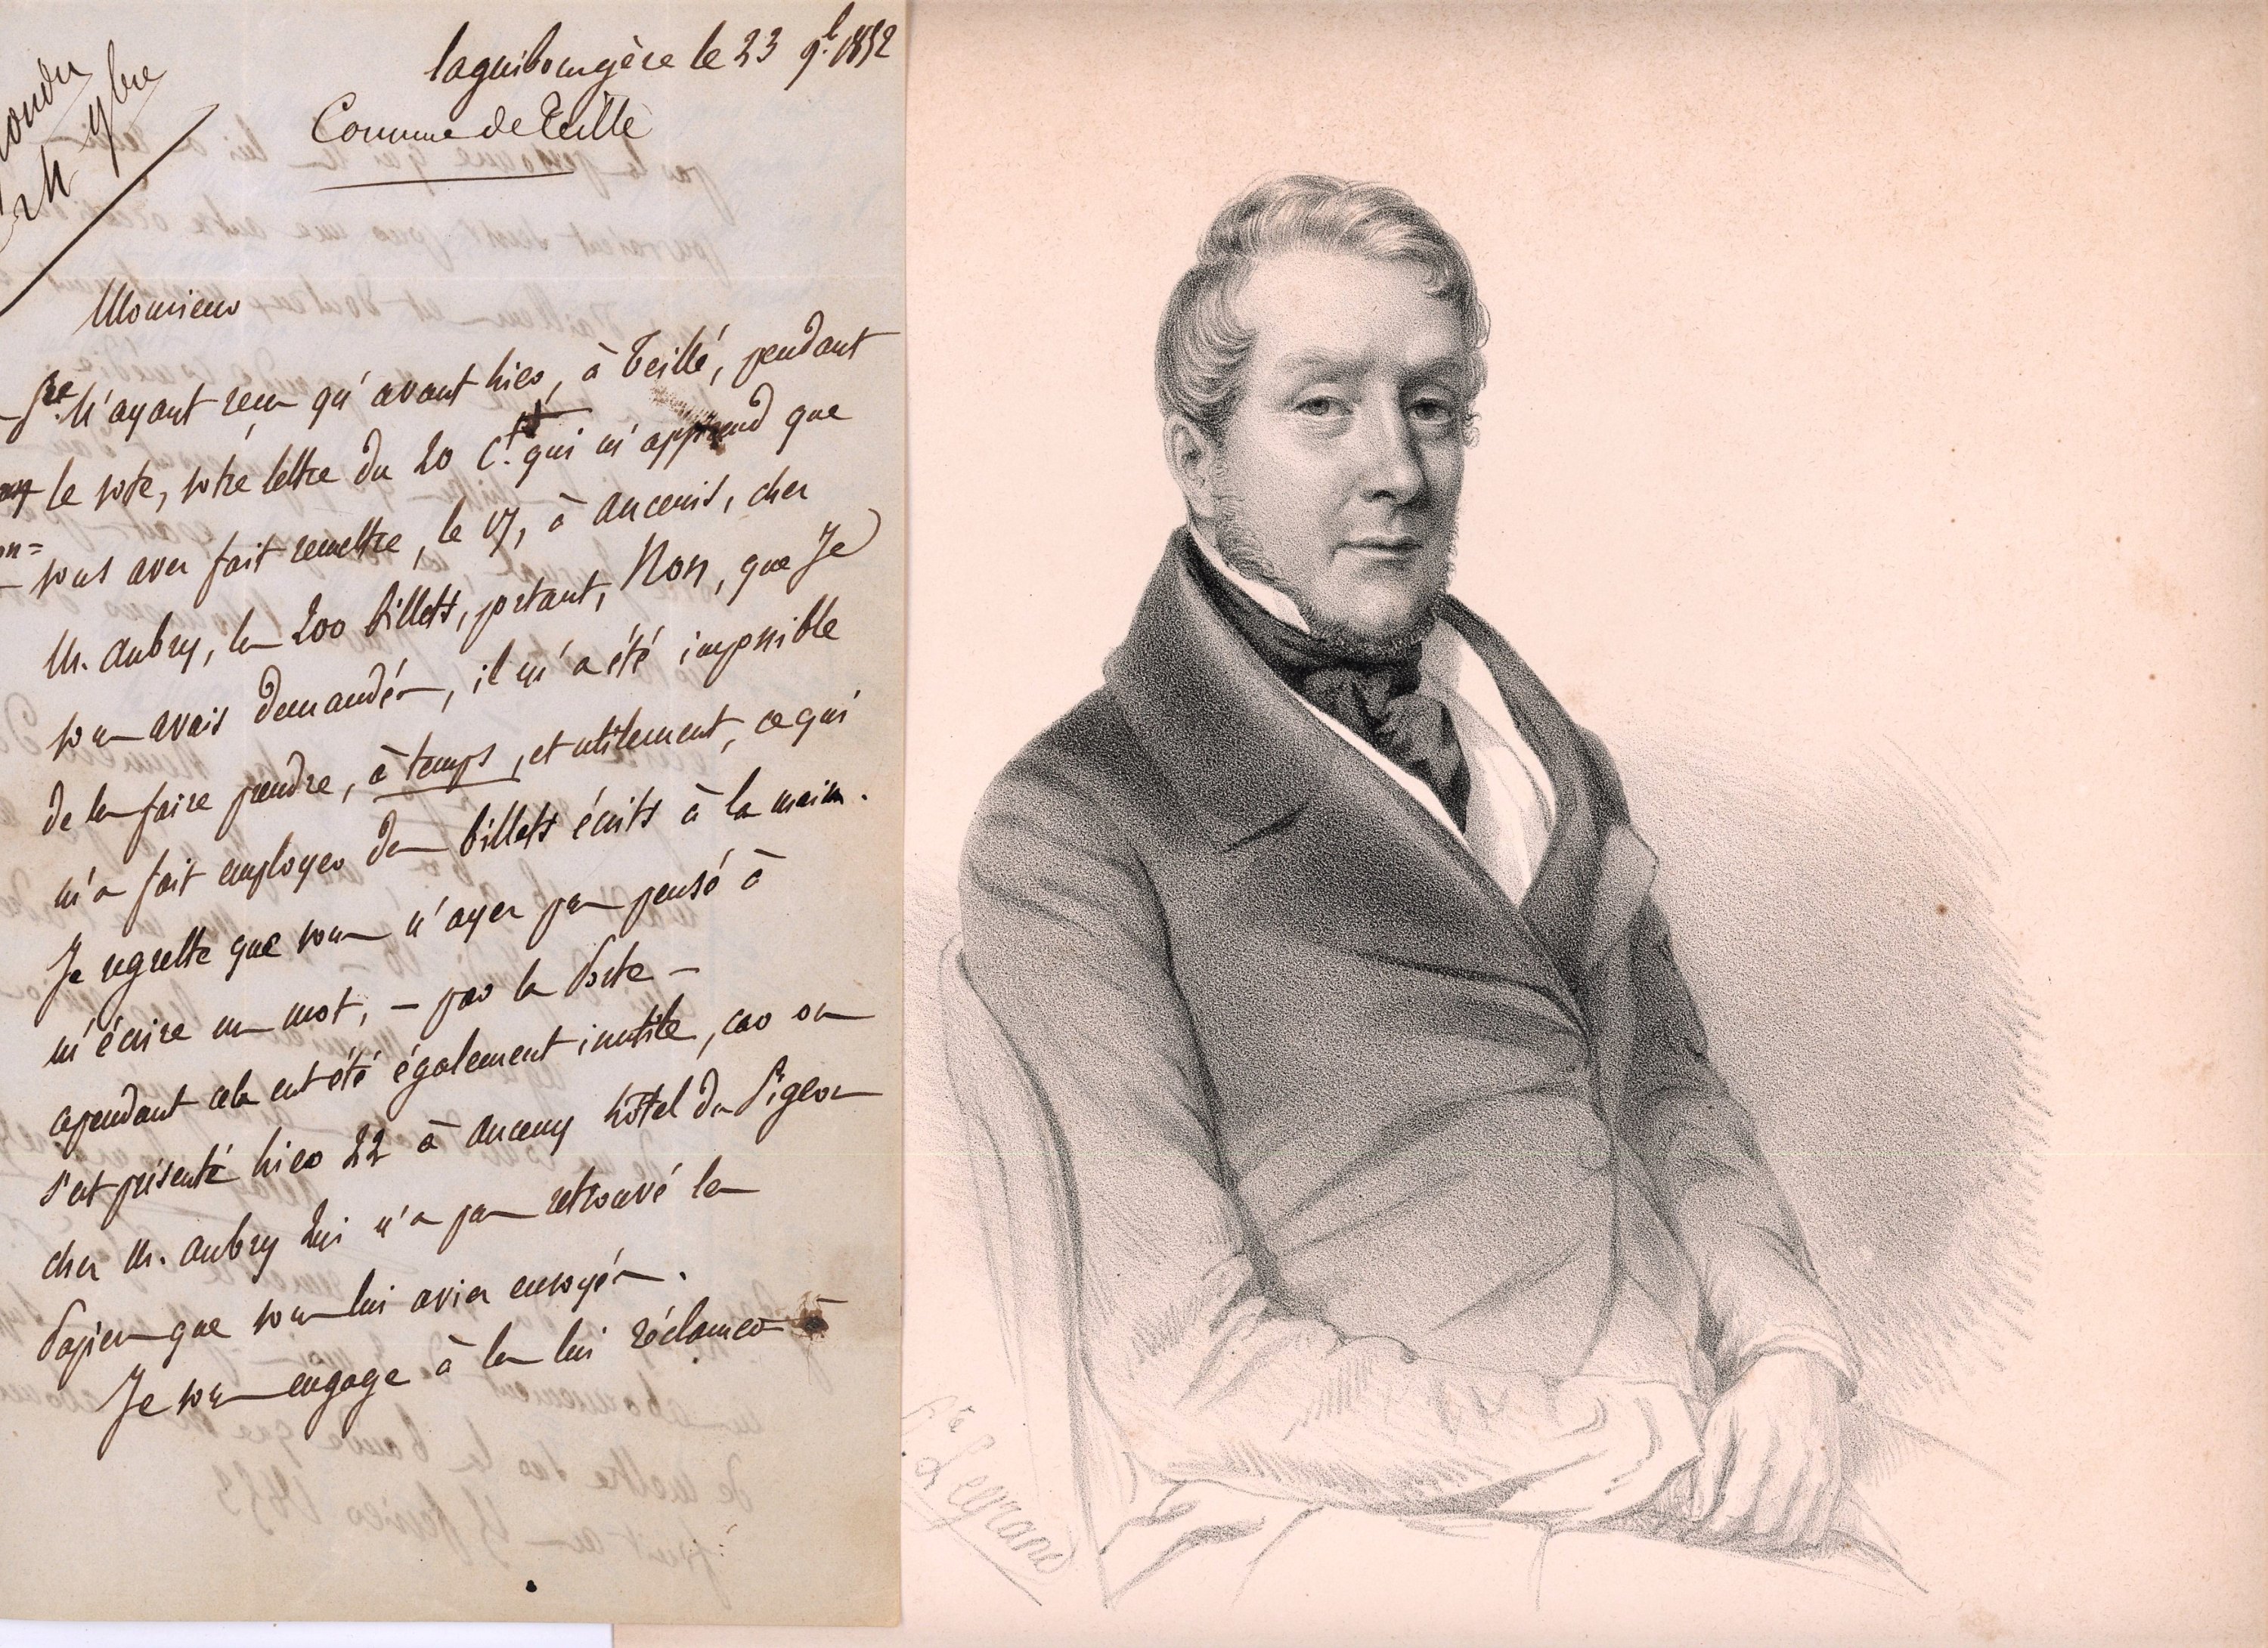 laguibourgère le 23 9.b 1852
Commune de Teillé
Monsieur
N'ayant reçu qu'avant hier, à Teillé, pendant
le vote, votre lettre du 20 Ct. qui m'apprend que
vous avez fait remettre, le 17, à ancenis, chez
M. aubry, les 200 billets, portant, Non, que Je
vous avais demandés, il m'a été impossible
de les faire prendre, à temps, et utilement, ce qui
m'a fait employer des billets écrits à la main.
Je regrette que vous n'ayez pas pensé à
m'écrire un mot, - par la Poste -
cependant cela eut été également inutile, car on
s'est présenté hier 22 à anceny hôtel du Pigeon
chez M. aubry Qui n'a pas retrouvé les
Papiers que vous lui aviez envoyés.
Je vous engage à les lui réclamer
Legrand